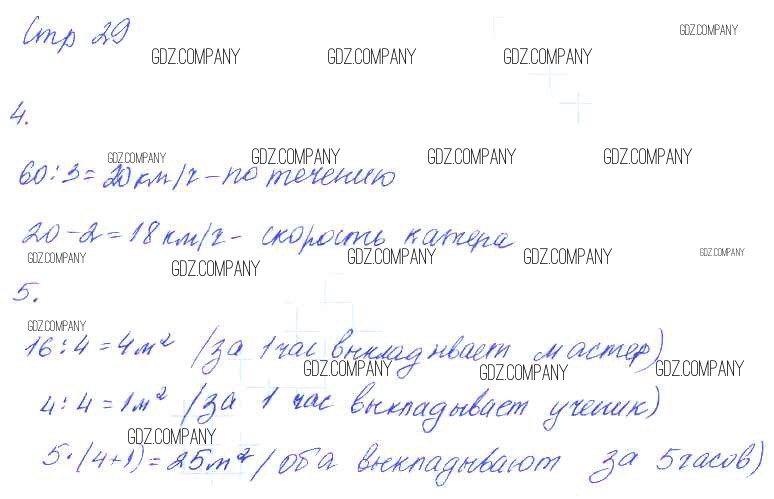 Стр 29
GDZ.COMPANY GDZ.COMPANY GDZ.COMPANY GDZ.COMPANY
4.
GDZ.COMPANY GDZ.COMPANY GDZ.COMPANY GDZ.COMPANY
60:3=20км/ч-по течению
20-2=18км/ч- скорость катера
GDZ.COMPANY GDZ.COMPANY GDZ.COMPANY GDZ.COMPANY GDZ.COMPANY
5.
GDZ.COMPANY
16:4=4м² (за 1час выкладывает мастер)
GDZ.COMPANY GDZ.COMPANY GDZ.COMPANY
4:4=1м² (за 1 час выкладывает ученик)
GDZ.COMPANY
5·(4+1)=25м² (оба выкладывают за 5часов)